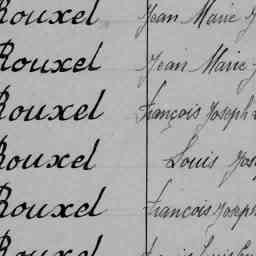 Rouxel Jean Marie
Rouxel Jean Marie
Rouxel François Joseph
Rouxel Louis Jos
Rouxel François Joseph
Rouxel